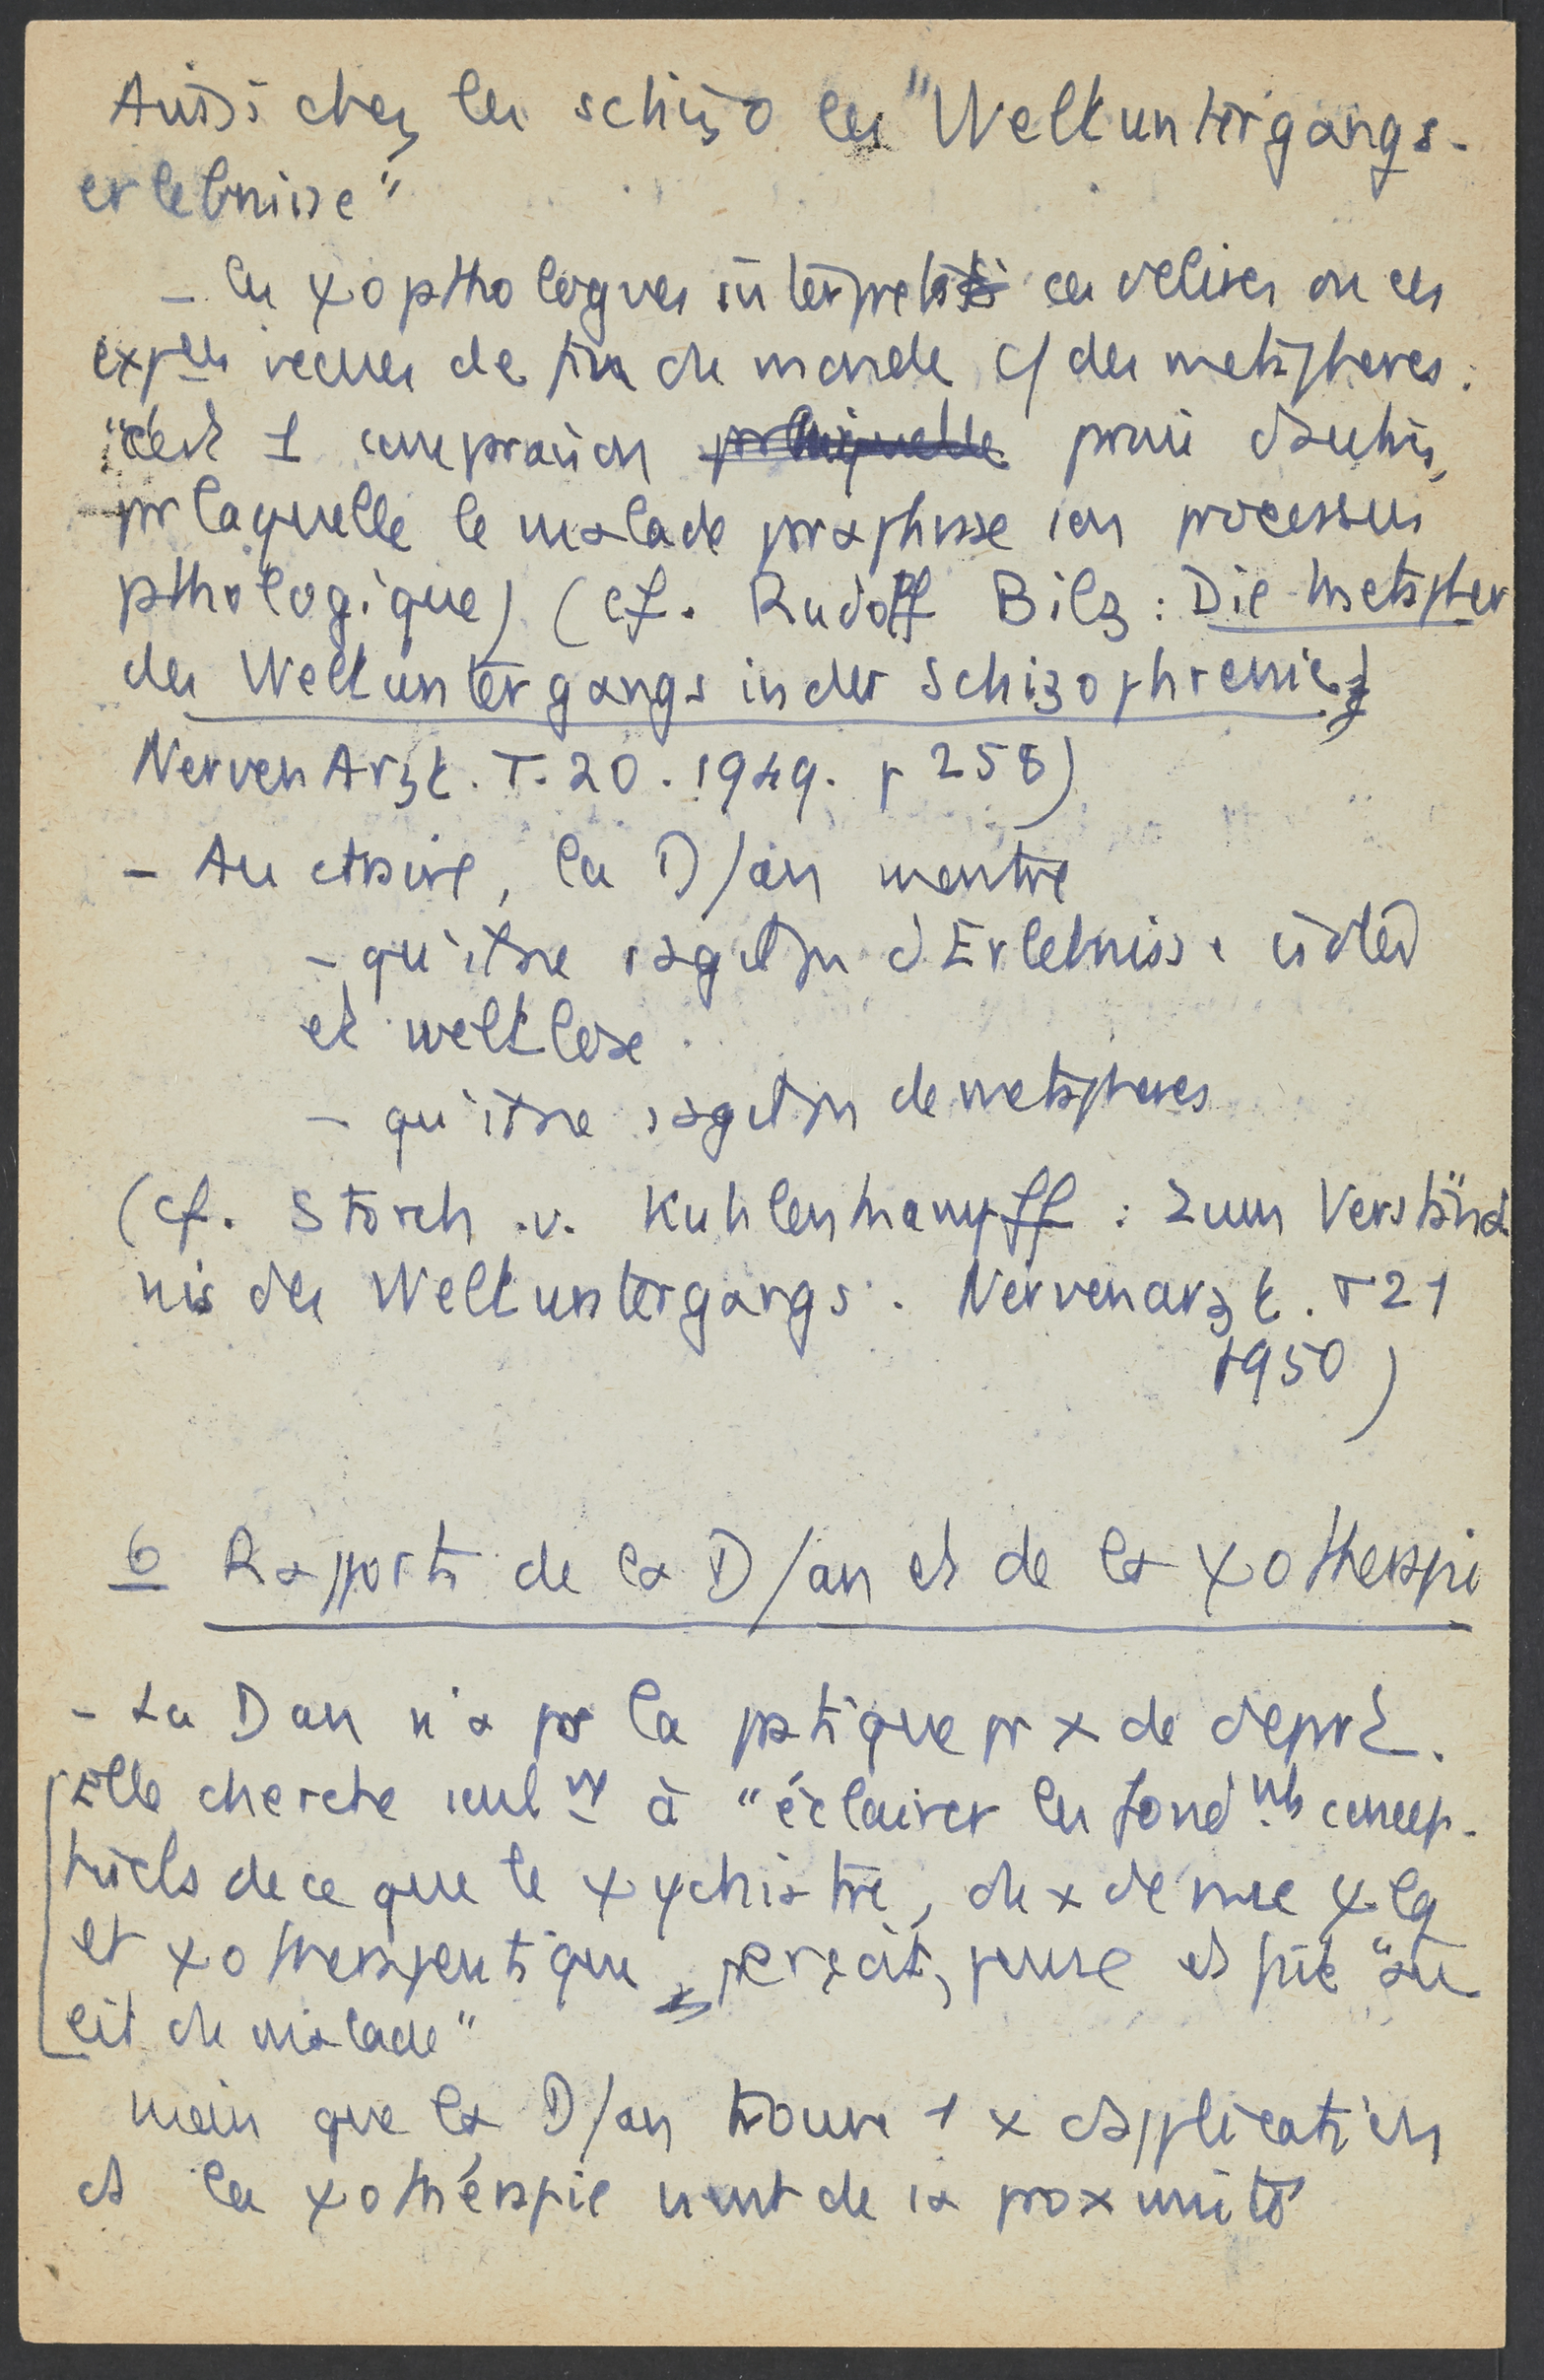 Aussi chez les schizo les "Weltuntergangs-
erlebnisse"
- les ψopthologues interpretent ces delires ou ces
expces vecues de fin du monde c/ des metaphores :
"c'est 1 comparaison parmi d'autres,
pr laquelle le malade paraphrase son processus
pthologique) (cf. Rudolf Bilz : Die Metapher
des Weltuntergangs in der Schizophrenie
NervenArzt. T. 20. 1949. p 258)
- Au ctraire, la D/an montre
- qu'il ne s'agit pas d'Erlebnisse isolées
et weltlose
- qu'il ne s'agit pas de metaphores
(cf. Storch v. Kuhlenkampff : Zum Verständ
nis des Weltuntergangs. Nervenarzt. T 21
1950)
6 Rapports de la D/an et de la ψotherapie
- La D an n'a pr la pratique pr x de départ.
Elle cherche seult à "éclairer les fondnts concep-
tuels de ce que le ψychiatre, du x de vue ψlg
et ψotherapeutique, perçoit, pense et fait "au
lit du malade"
mais que la D/an trouve 1 x d'application
ds la ψothérapie vient de sa proximité